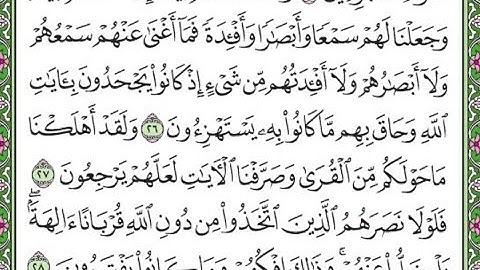 وَجَعَلْنَا لَهُمْ سَمْعًا وَأَبْصَٰرًا وَأَفْـِٔدَةً فَمَآ أَغْنَىٰ عَنْهُمْ سَمْعُهُمْ
وَلَآ أَبْصَٰرُهُمْ وَلَآ أَفْـِٔدَتُهُم مِّن شَىْءٍ إِذْ كَانُوا۟ يَجْحَدُونَ بِـَٔايَٰتِ
ٱللَّهِ وَحَاقَ بِهِم مَّا كَانُوا۟ بِهِۦ يَسْتَهْزِءُونَ ٢٦ وَلَقَدْ أَهْلَكْنَا
مَا حَوْلَكُم مِّنَ ٱلْقُرَىٰ وَصَرَّفْنَا ٱلْـَٔايَٰتِ لَعَلَّهُمْ يَرْجِعُونَ ٢٧
فَلَوْلَا نَصَرَهُمُ ٱلَّذِينَ ٱتَّخَذُوا۟ مِن دُونِ ٱللَّهِ قُرْبَانًا ءَالِهَةًۢ
بَلْ ضَلُّوا۟ عَنْهُمْ ۚ وَذَٰلِكَ إِفْكُهُمْ وَمَا كَانُوا۟ يَفْتَرُونَ ٢٨